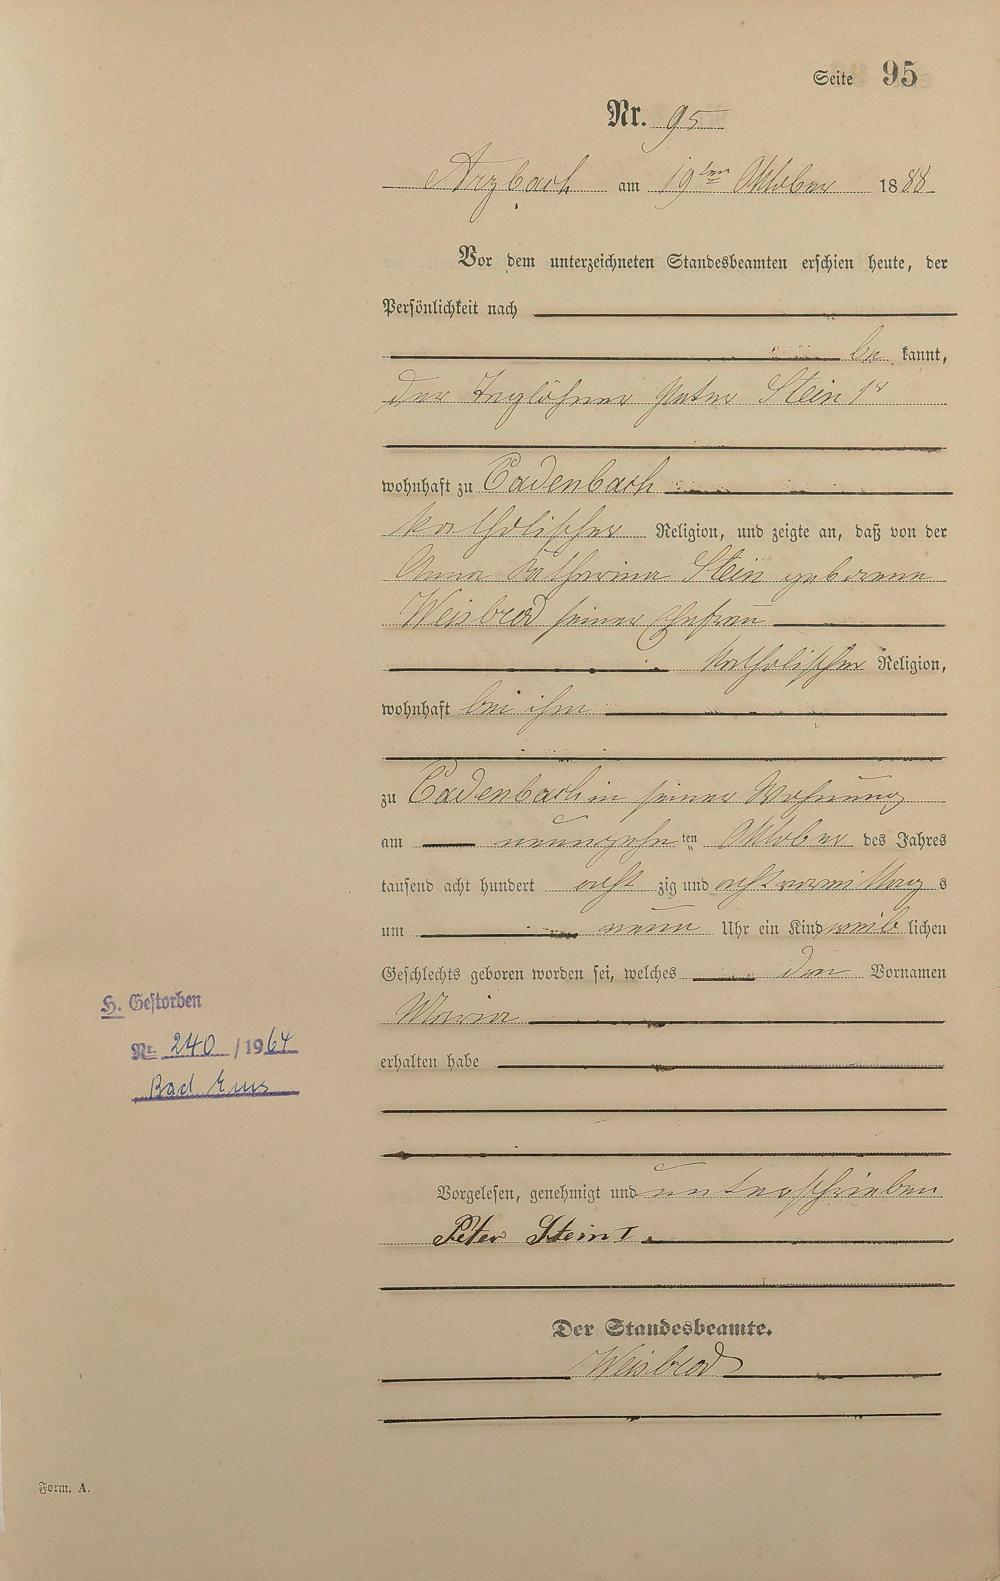 Seite 95
Nr. 95
Arzbach am 19ten Oktober 1888
Vor dem unterzeichneten Standesbeamten erschien heute, der
Persönlichkeit nach
be kannt,
der Taglöhner Peter Stein 1r
wohnhaft zu Cadenbach
katholischer Religion, und zeigte an, daß von der
Anna Katharina Stein geborenen
Weisbrod seiner Ehefrau
katholischer Religion,
wohnhaft bei ihm
zu Cadenbach in seiner Wohnung
am neunzehn ten Oktober des Jahres
tausend acht hundert acht zig und acht vormittag s
um neun Uhr ein Kind weib lichen
Geschlechts geboren worden sei, welches den Vornamen
Maria
H. Gestorben
Nr. 240 / 1964
Bad Ems
erhalten habe
Vorgelesen, genehmigt und unterschrieben
Peter Stein I.
Der Standesbeamte.
Weisbrod
Form. A.